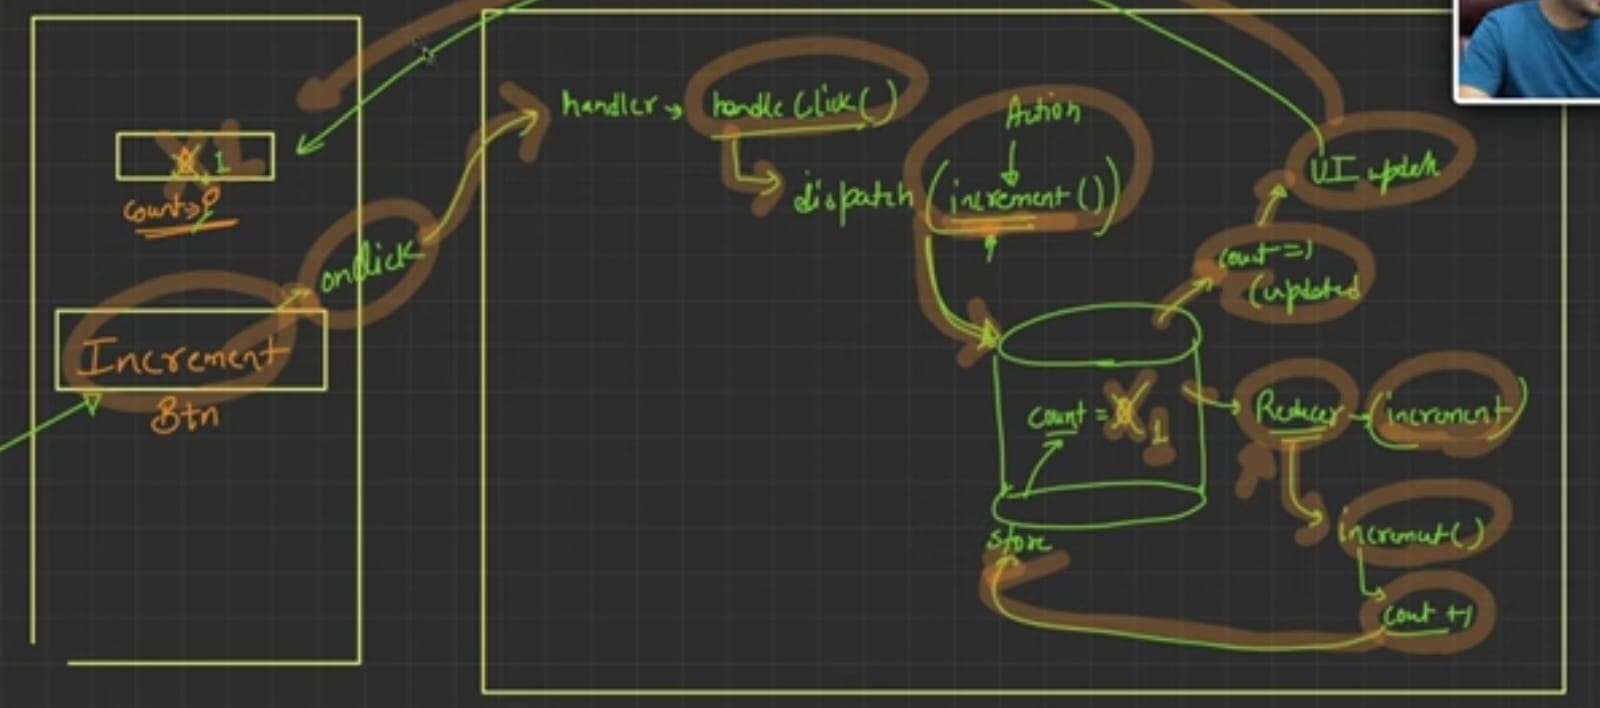 1
count → 0
Increment
Btn
onClick
handler → handleClick()
Action
dispatch (increment())
UI update
count = 1
(updated
count = 0 1
Reducer → (increment)
store
increment()
count +1